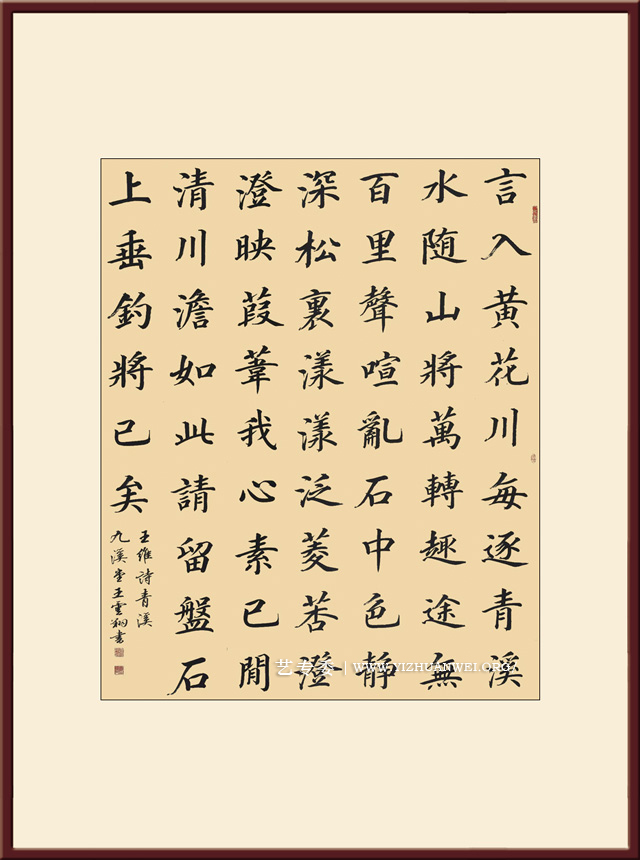 言入黄花川每逐青溪
水随山將萬轉趣途無
百里聲喧亂石中色静
深松裏漾漾泛菱荇澄
澄映葭葦我心素已閒
清川澹如此請留盤石
上垂釣將已矣
王維詩青溪
九溪堂王雲翔書
艺专委 | WWW.YIZHUANWEI.ORG